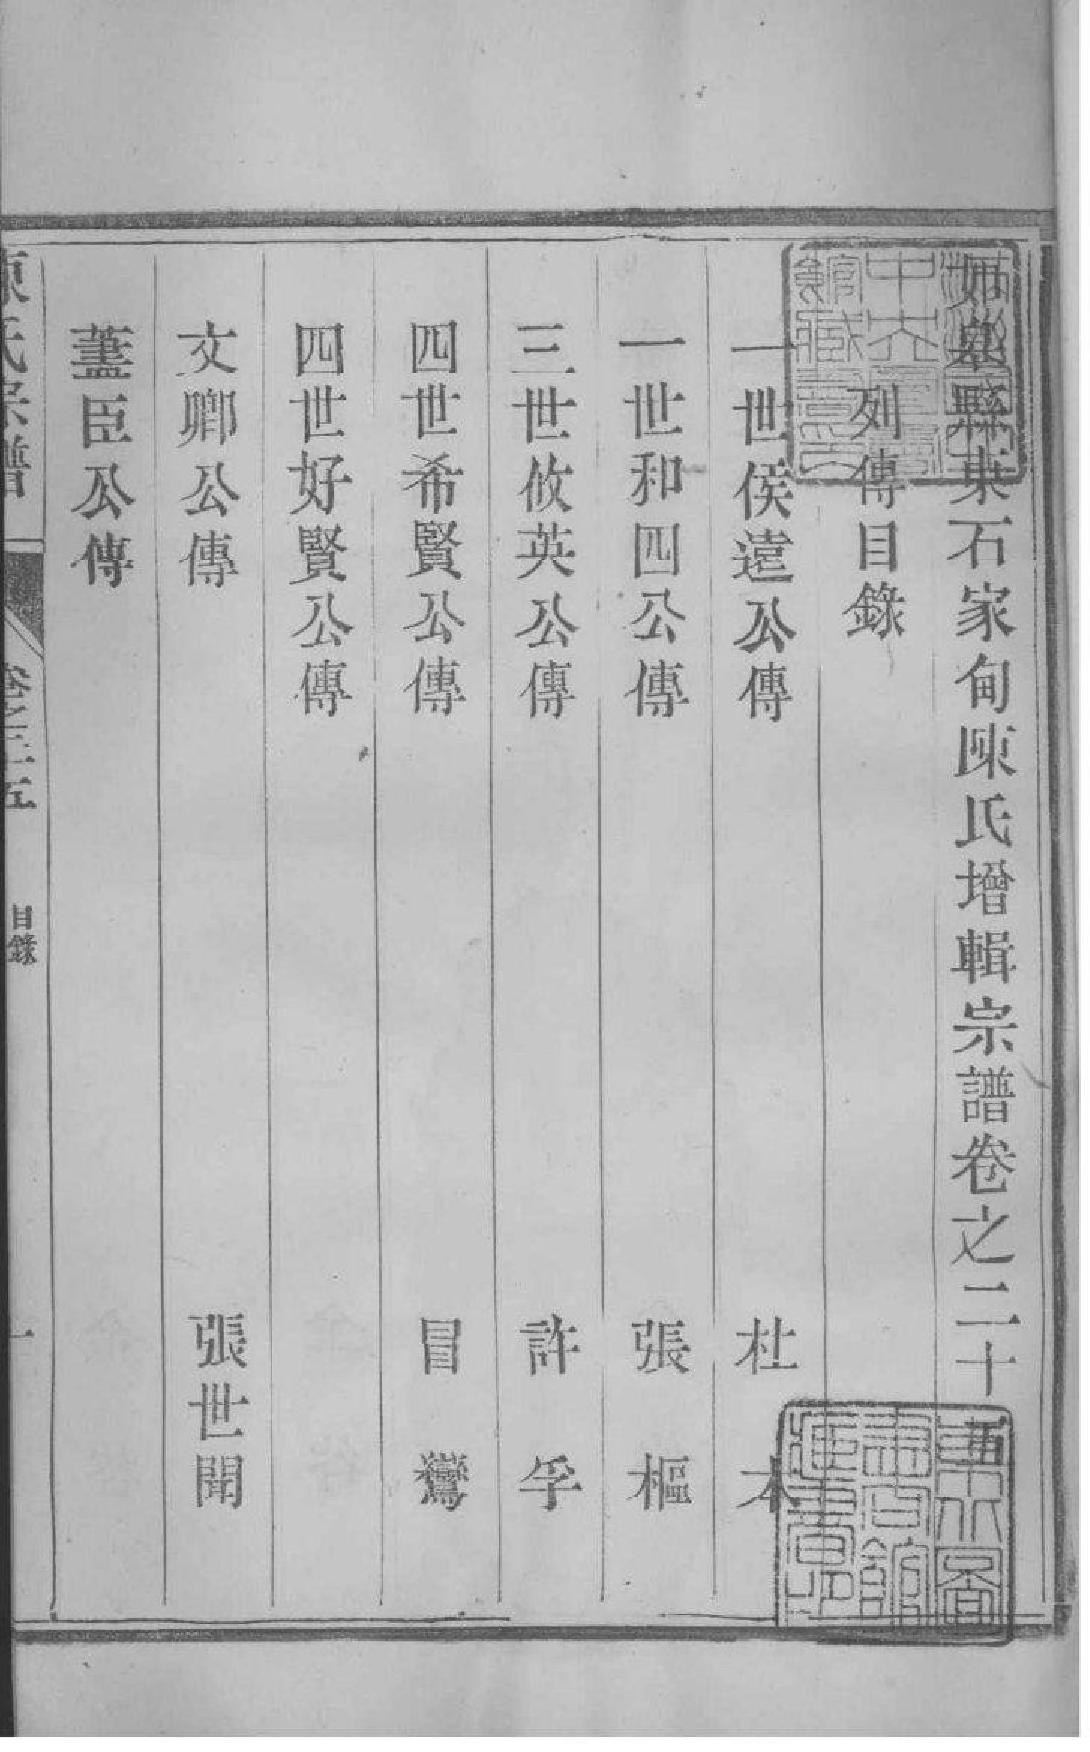 如皋縣東石家甸陳氏增輯宗譜卷之二十五
列傳目錄
一世侯遠公傳 杜 本
一世和四公傳 張 樞
三世攸英公傳 許 孚
四世希賢公傳 冒 鸞
四世好賢公傳
文卿公傳 張世聞
藎臣公傳
陳氏宗譜 卷之二十五 目錄 一